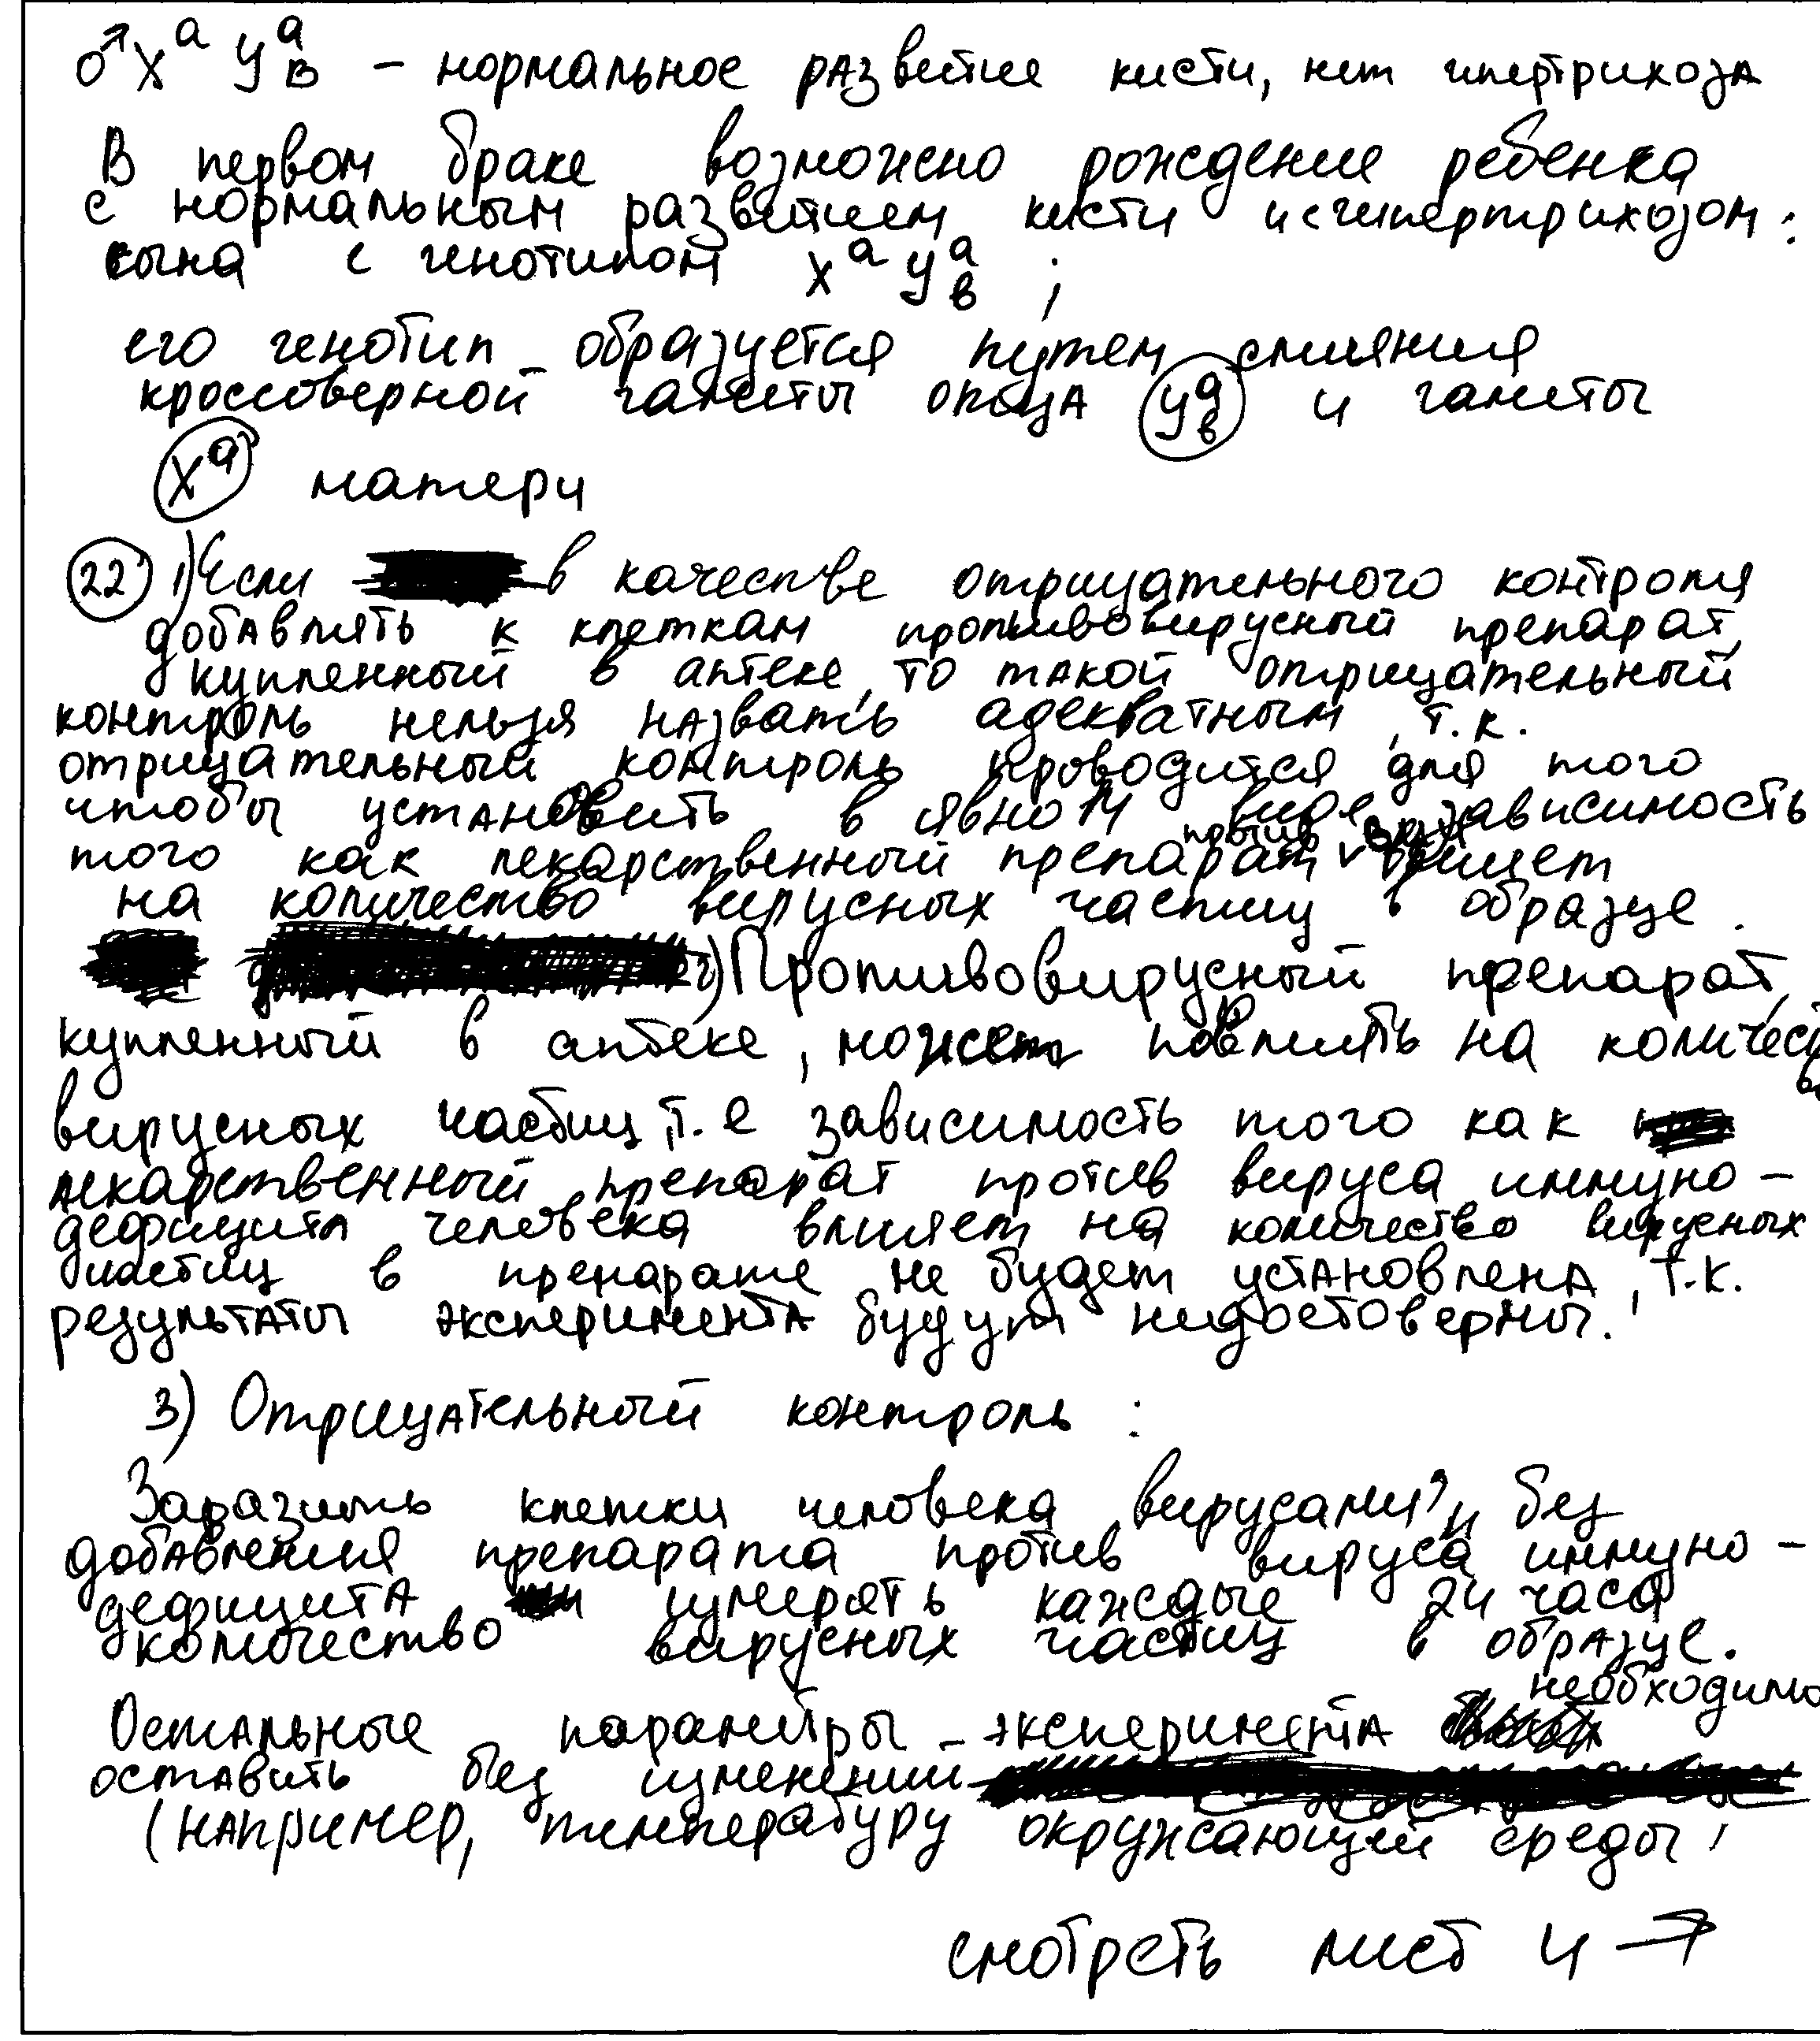 ♂ X^a Y^a_B – нормальное развитие кисти, нет гипертрихоза
В первом браке возможно рождение ребенка
с нормальным развитием кисти и с гипертрихозом:
сына с генотипом X^a Y^a_b ;
его генотип образуется путем слияния
кроссоверной гаметы отца Y^a_b и гаметы
X^a матери
22 1) Если в качестве отрицательного контроля
добавлять к клеткам противовирусный препарат,
купленный в аптеке, то такой отрицательный
контроль нельзя назвать адекватным, т.к.
отрицательный контроль проводится для того
чтобы установить в явном виде зависимость
того как лекарственный препарат против ВИЧ влияет
на количество вирусных частиц в образце.
2) Противовирусный препарат,
купленный в аптеке, может повлиять на количество
вирусных частиц, т.е зависимость того как
лекарственный препарат против вируса иммуно-
дефицита человека влияет на количество вирусных
частиц в препарате не будет установлена, т.к.
результаты эксперимента будут недостоверны.
3) Отрицательный контроль :
Заразить клетки человека вирусами, и без
добавления препарата против вируса иммуно-
дефицита измерять каждые 24 часа
количество вирусных частиц в образце.
Остальные параметры эксперимента необходимо
оставить без изменений
(например, температуру окружающей среды,
смотреть лист 4 →